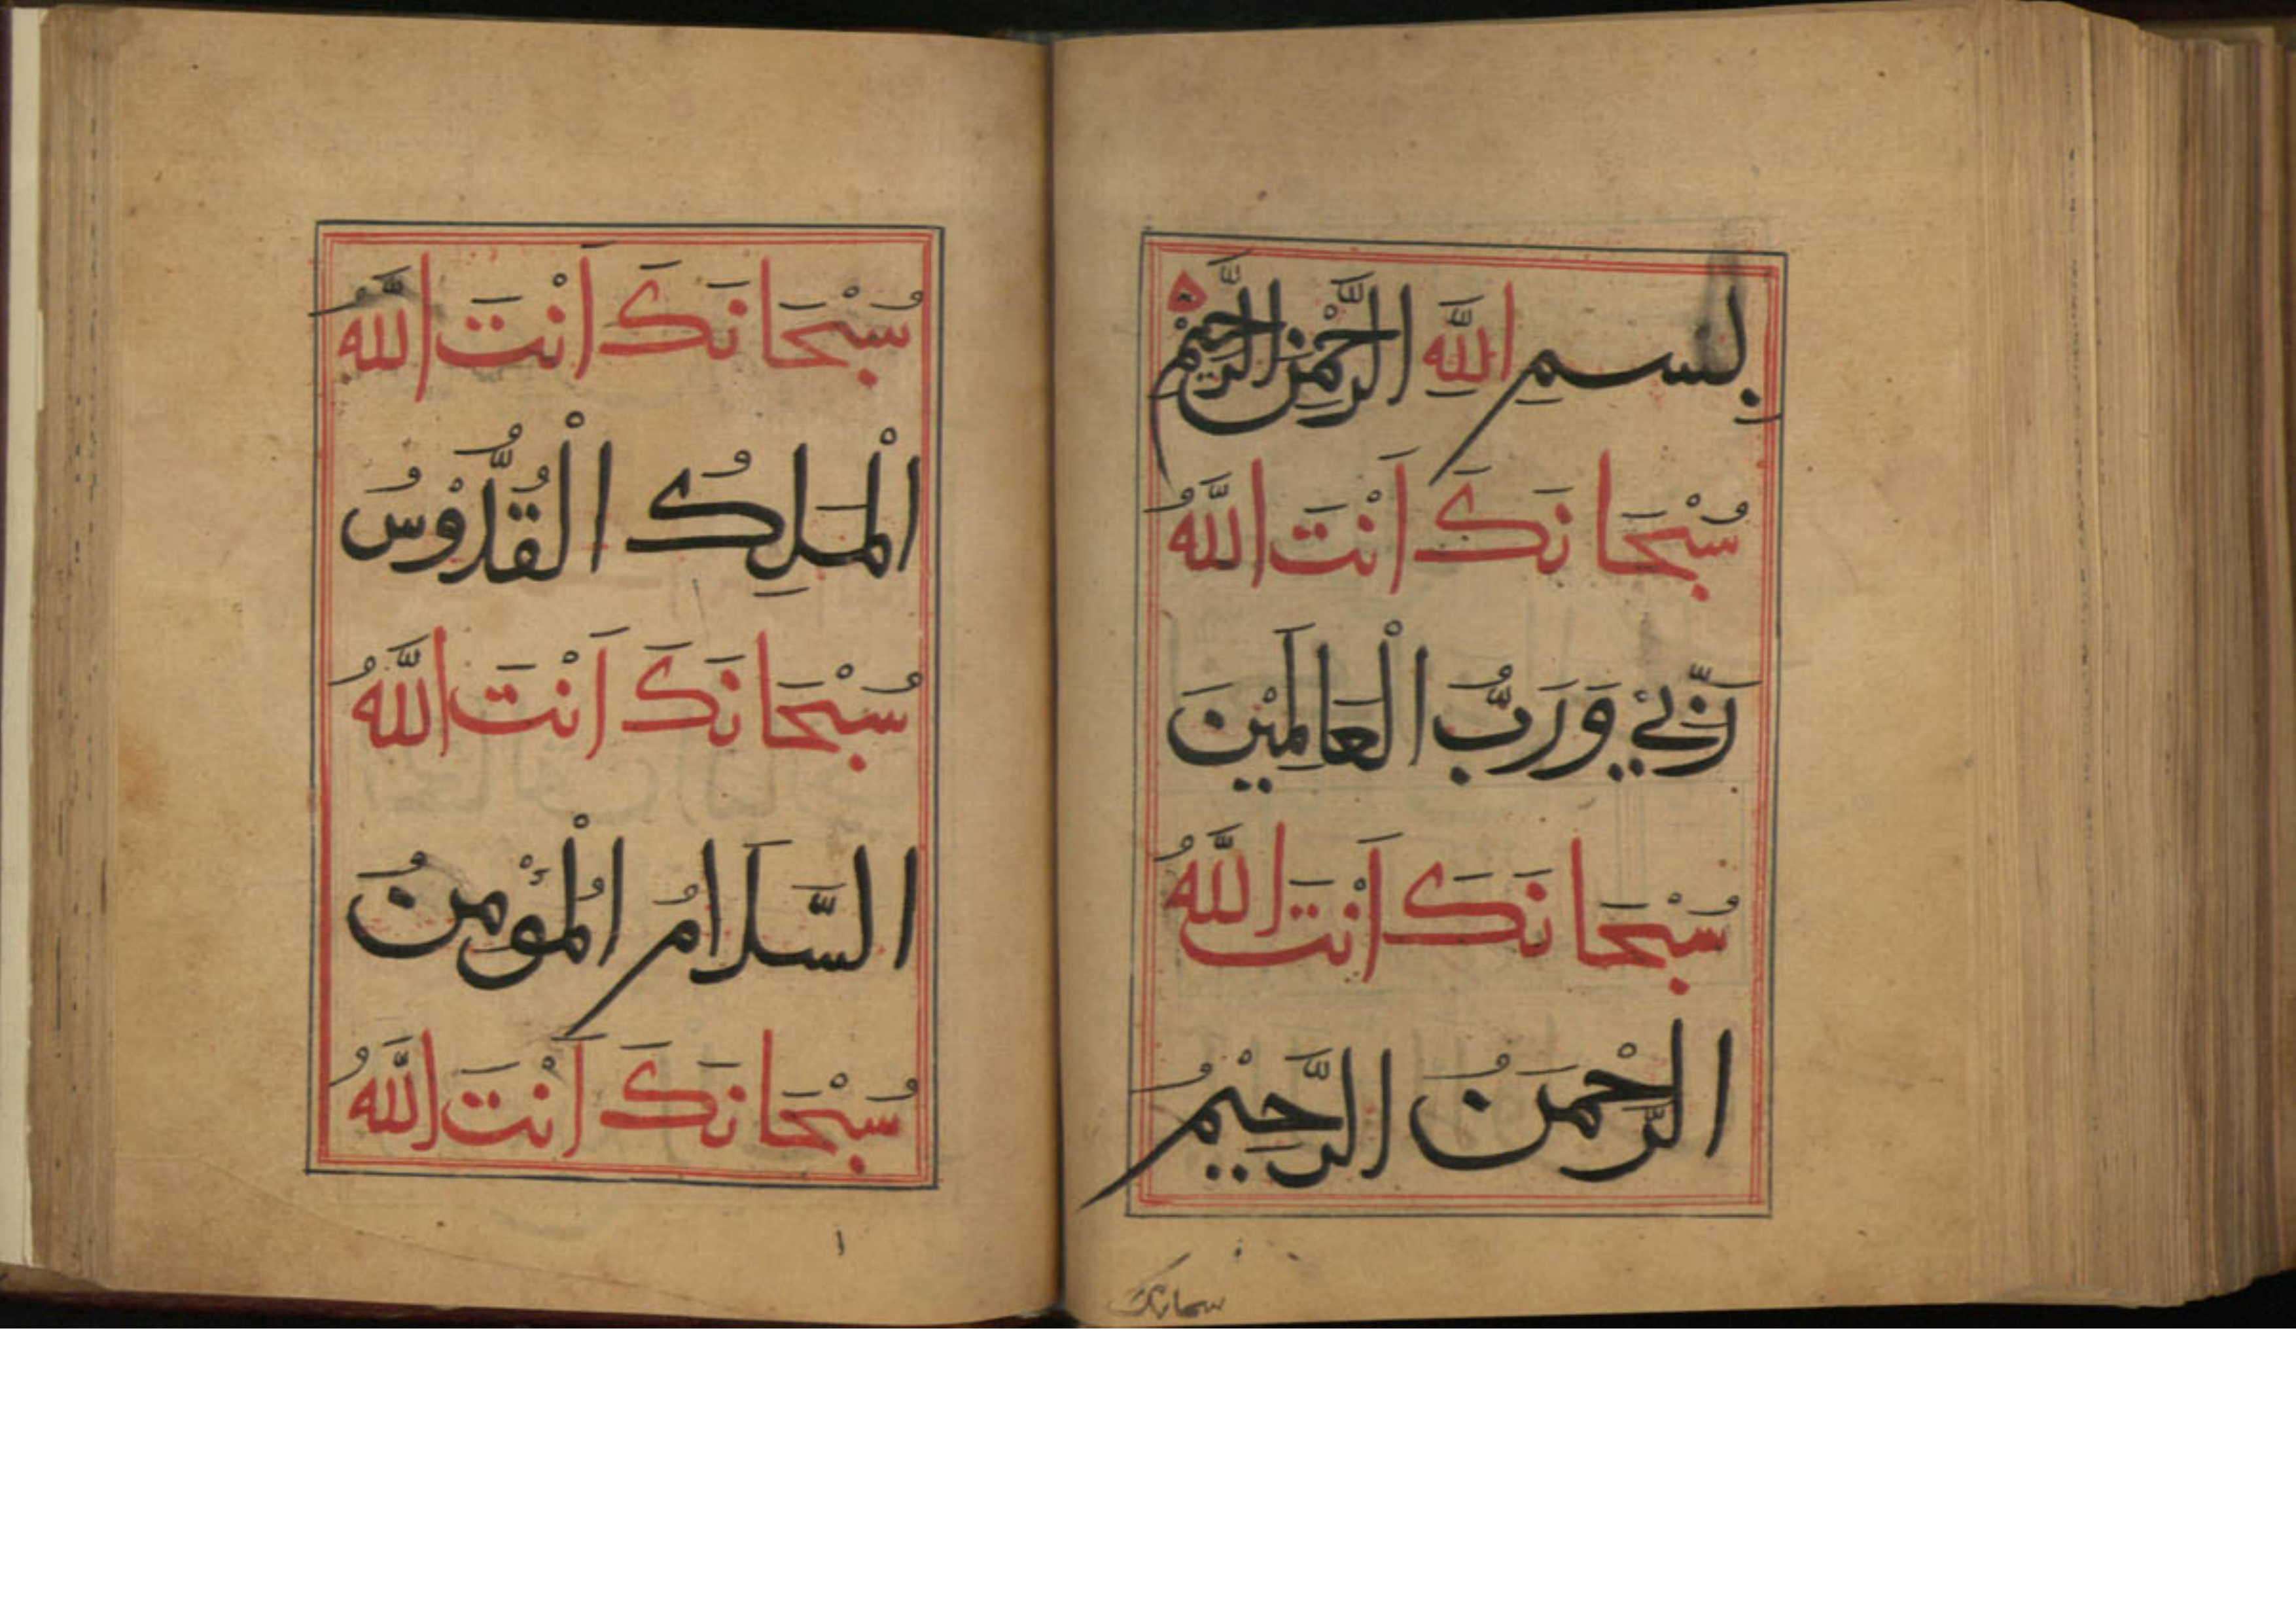 بِسمِ اللَّهِ الرَّحْمٰنِ الرَّحِيْمِ
سُبْحَانَكَ اَنْتَ اللَّهُ
رَبِّيْ وَرَبُّ الْعَالَمِيْنَ
سُبْحَانَكَ اَنْتَ اللَّهُ
الرَّحْمَنُ الرَّحِيْمُ
سبحانك
سُبْحَانَكَ اَنْتَ اللَّهُ
الْمَلِكُ الْقُدُّوْسُ
سُبْحَانَكَ اَنْتَ اللَّهُ
السَّلَامُ الْمُؤْمِنُ
سُبْحَانَكَ اَنْتَ اللَّهُ
١